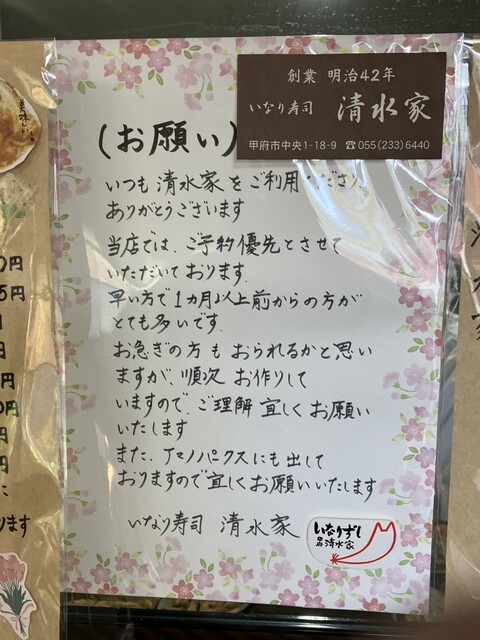 創業 明治42年
いなり寿司 清水家
甲府市中央1-18-9 ☎055(233)6440
(お願い)
いつも清水家をご利用くださり
ありがとうございます
当店では、ご予約優先とさせて
いただいております。
早い方で1カ月以上前からの方が
とても多いです。
お急ぎの方もおられるかと思い
ますが、順次お作りして
いますので、ご理解宜しくお願い
いたします
また、アマノパークスにも出して
おりますので宜しくお願いいたします
いなり寿司 清水家
いなりずし
清水家
美味しい
0円
5円
円
0円
円
円
に
ります